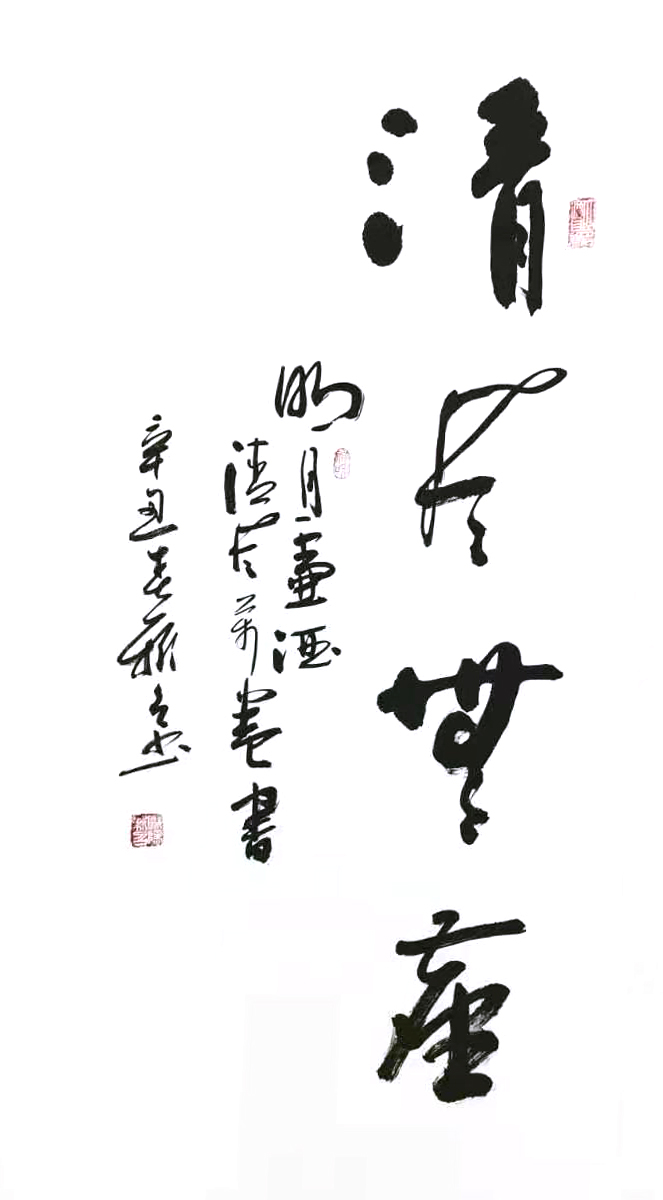 清風無塵
明月一壺酒
清風萬卷書
辛丑春